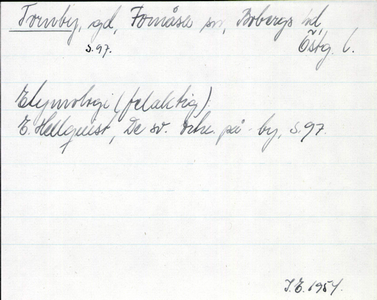 Tornby, gd, Fornåsa sn, Bobergs hd,
s. 97. Östg. l.
Etymologi (felaktig),
E. Hellquist, De sv. ortn. på -by, s. 97.
J.E. 1954.